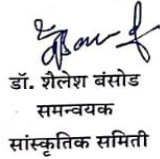 डॉ. शैलेश बंसोड
समन्वयक
सांस्कृतिक समिती